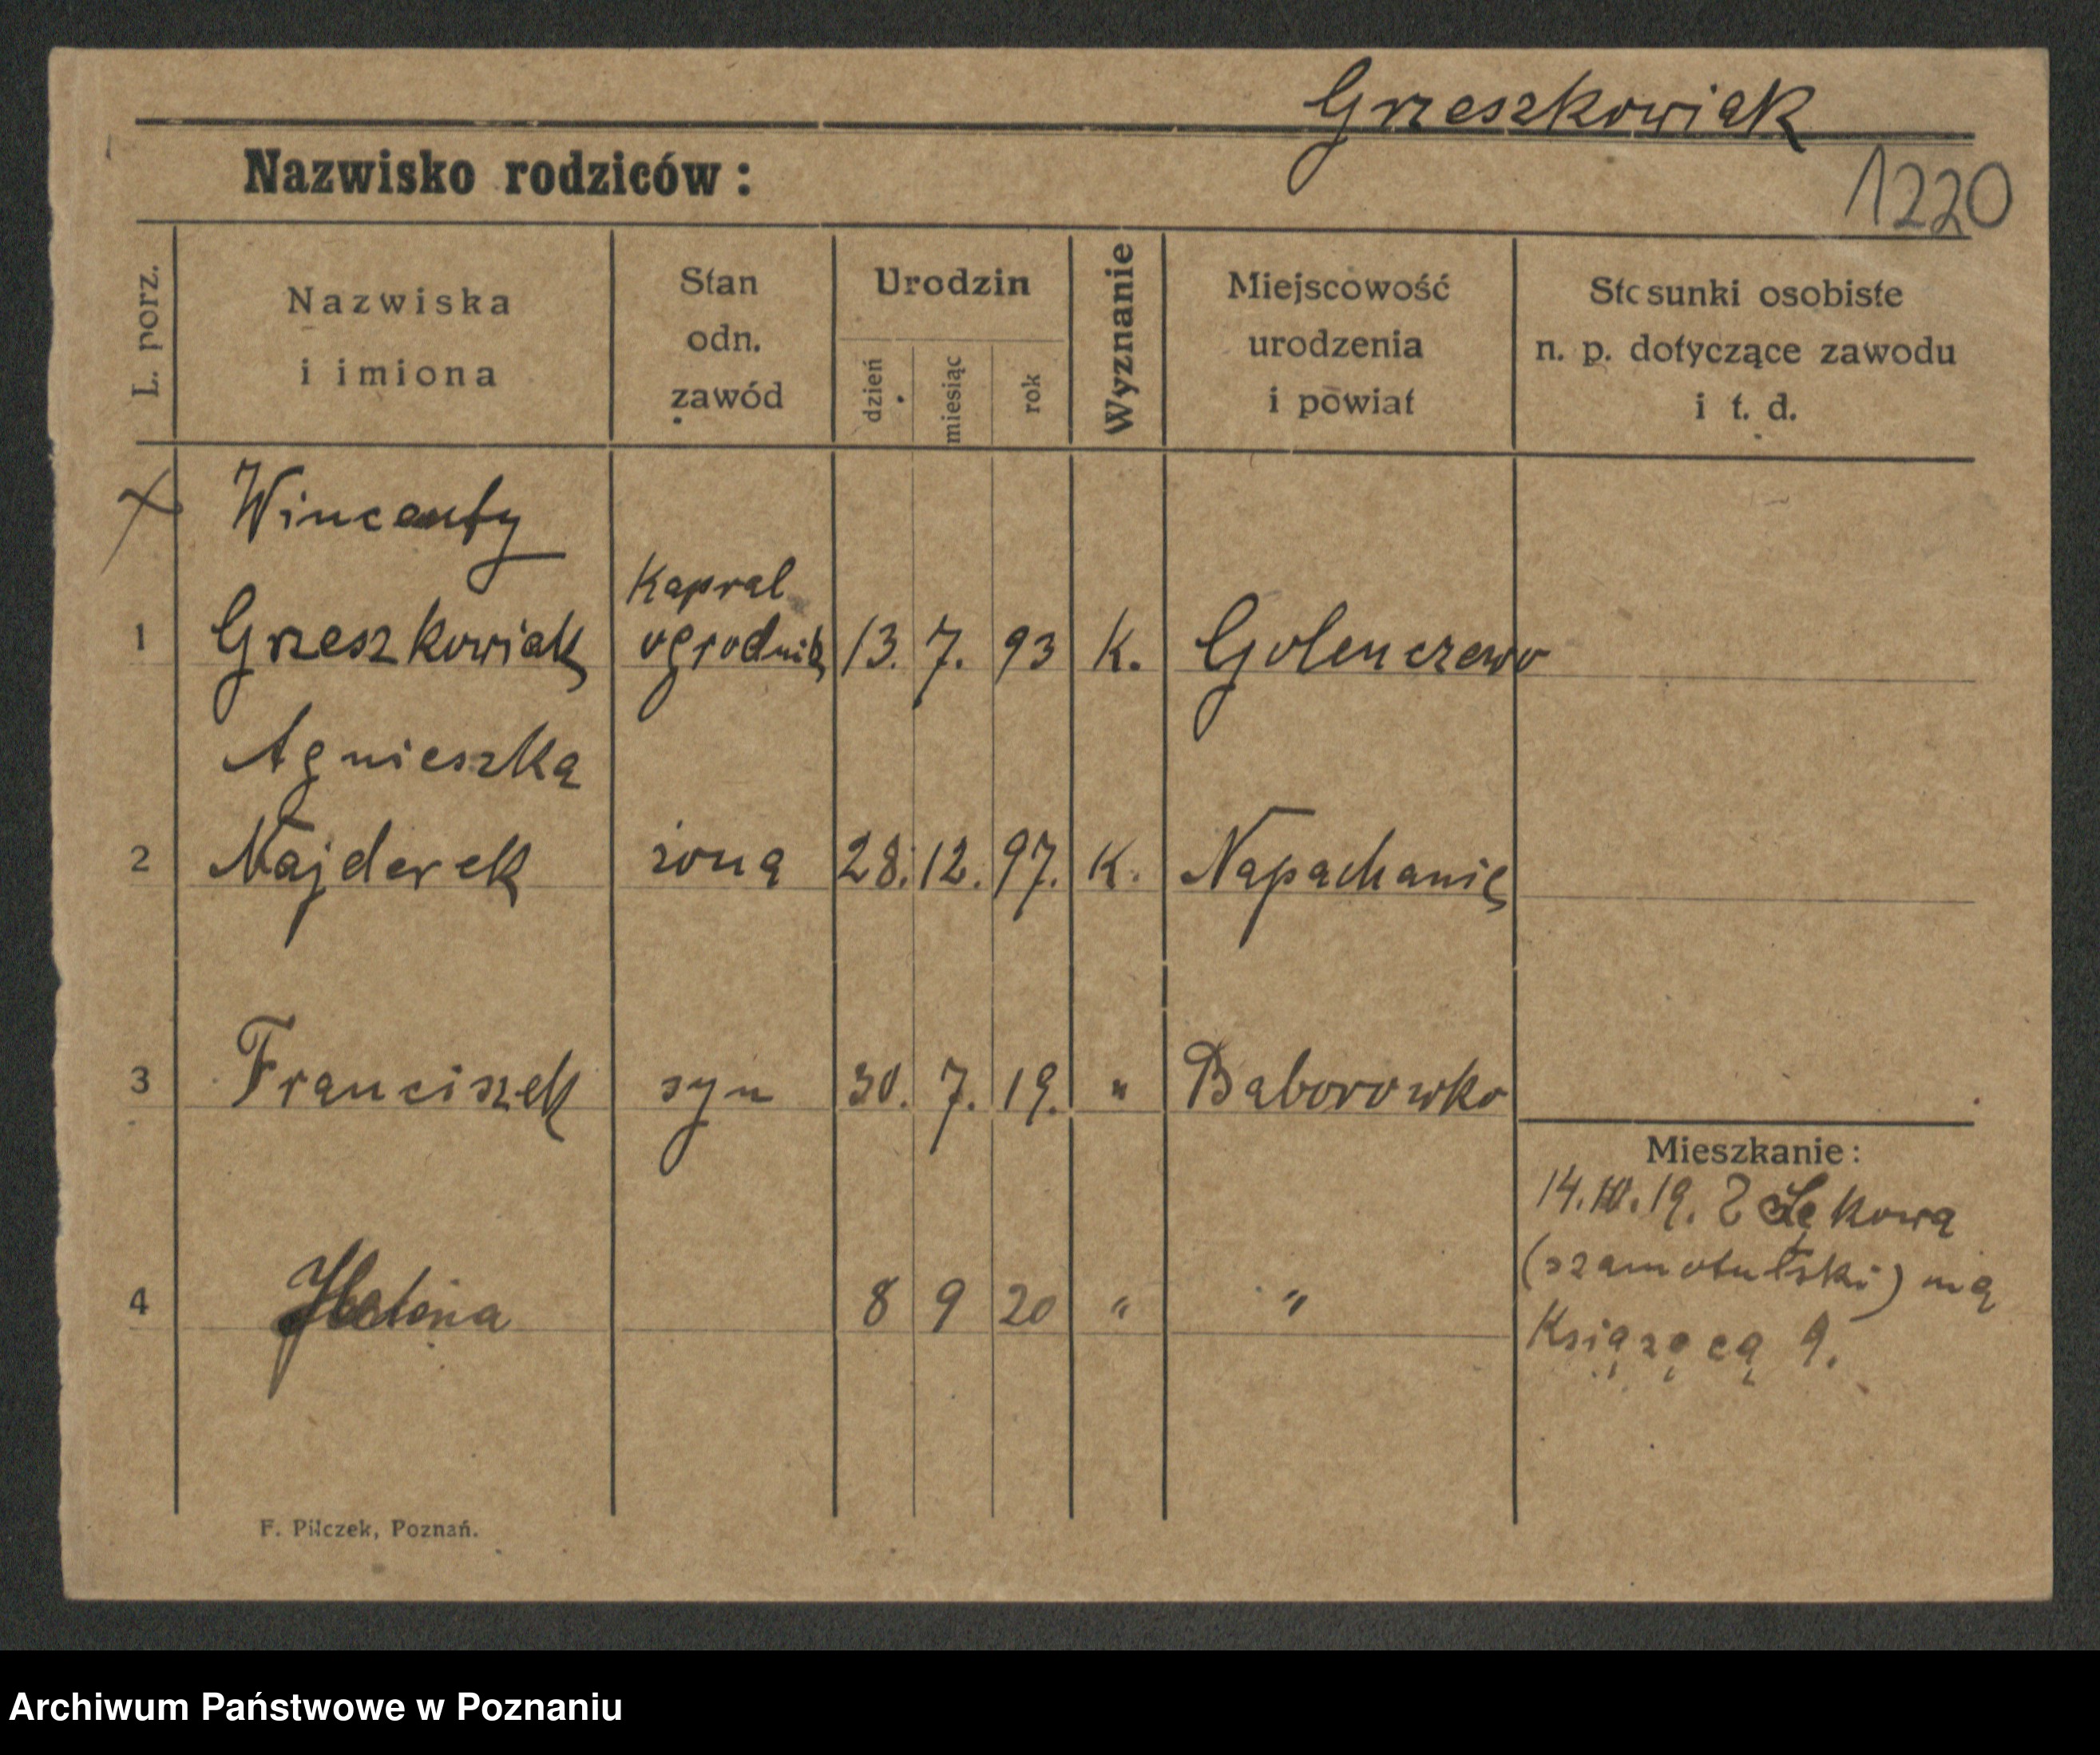 Grzeszkowiak
Nazwisko rodziców:
1220
L. porz.
Nazwiska
i imiona
Stan
odn.
zawód
Urodzin
dzień
miesiąc
rok
Wyznanie
Miejscowość
urodzenia
i powiat
Stosunki osobiste
n. p. dotyczące zawodu
i t. d.
Wincenty
Kapral
1 Grzeszkowiak ogrodnik 13. 7. 93 K. Golenczewo
Agnieszka
2 Najderek żona 28. 12. 97. K. Napachanie
3 Franciszek syn 30. 7. 19. " Baborowko
4 Helena 8 9 20 " "
Mieszkanie:
14. 19. Z
(szamotulski) na
Książęcą 9.
F. Pilczek, Poznań.
Archiwum Państwowe w Poznaniu